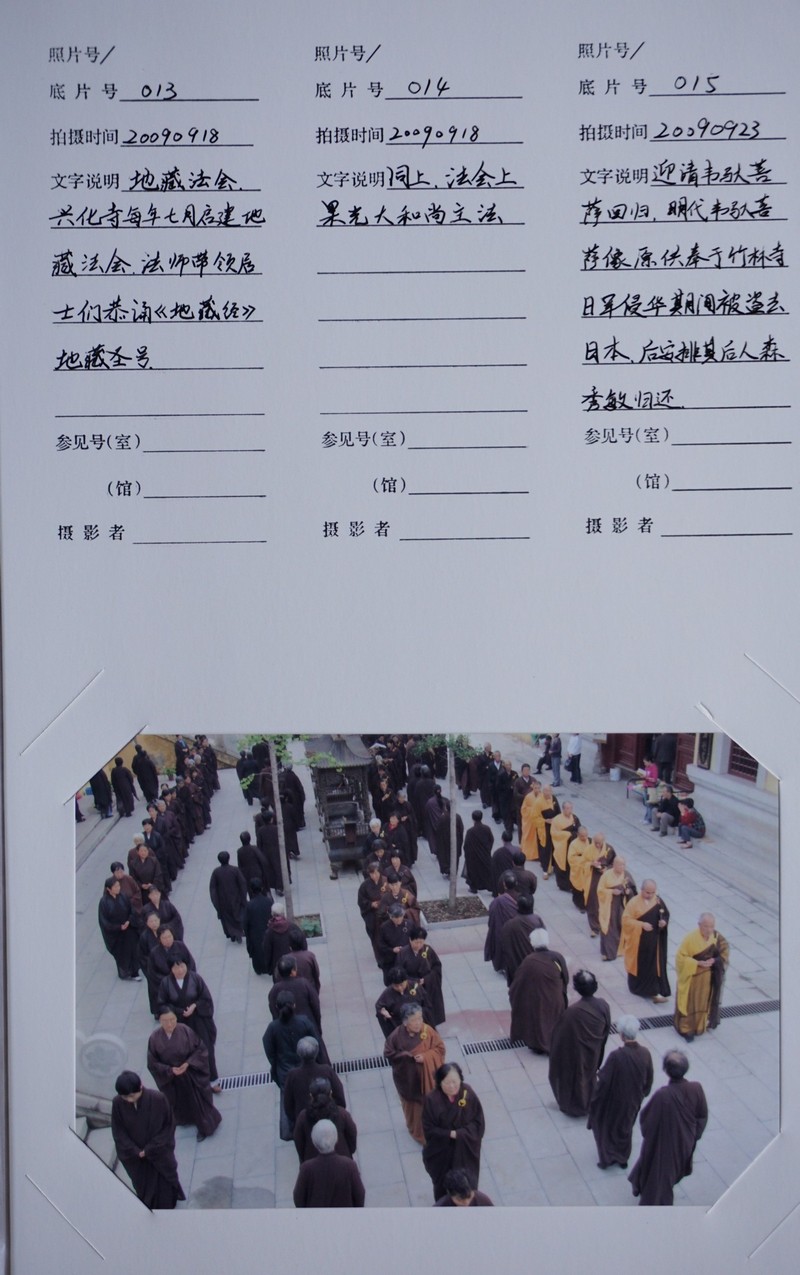 照片号/
底片号 013
拍摄时间 20090918
文字说明 地藏法会.
兴化寺每年七月启建地
藏法会.法师带领居
士们恭诵《地藏经》
地藏圣号.
参见号(室)
(馆)
摄影者
照片号/
底片号 014
拍摄时间 20090918
文字说明 同上.法会上
果光大和尚主法
参见号(室)
(馆)
摄影者
照片号/
底片号 015
拍摄时间 20090923
文字说明 迎请韦驮菩
萨回归.明代韦驮菩
萨像原供奉于竹林寺
日军侵华期间被盗去
日本.后安排其后人森
秀敏归还.
参见号(室)
(馆)
摄影者